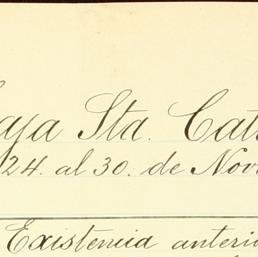 Caja Sta. Cat
24. al 30. de Nov
Existencia anteri